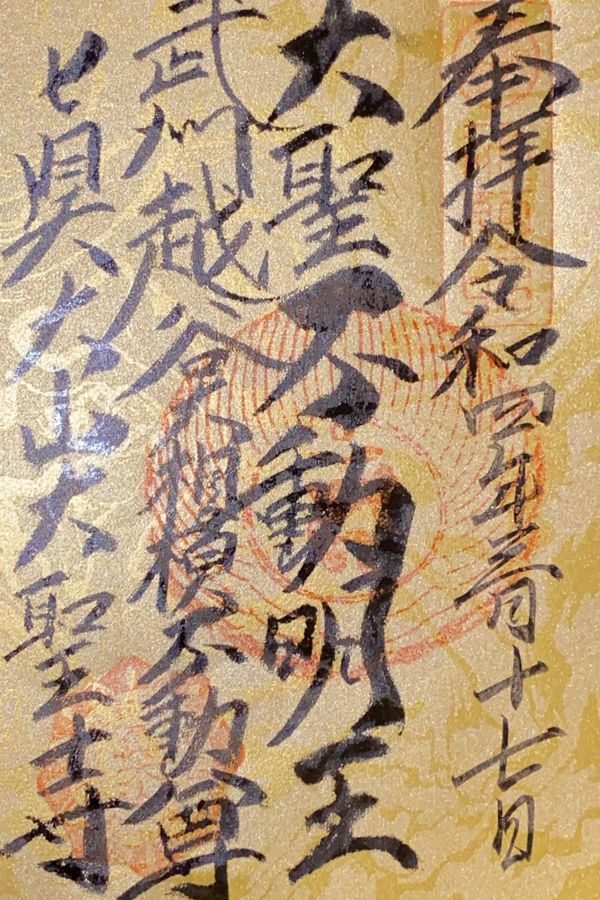 奉拝令和四年三月十七日
大聖不動明王
武州越谷大相模不動尊
眞大山大聖寺